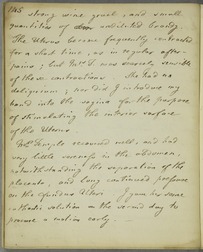 145
strong wine gruel, and small
quantities of undiluted brandy.
The Uterus became frequently contracted
for a short time, as in regular after-
pains; but Mrs. S. was scarcely sensible
of these contractions. She had no
deliquium; nor did I introduce my
hand into the vagina for the purpose
of stimulating the interior surface
of the Uterus.
Mrs. Semple recovered well, and had
very little soreness in the abdomen,
notwithstanding the separation of the
placenta, and long continued pressure
on the Uterus. I gave her some
cathartic solution on the second day to
procure a motion early.